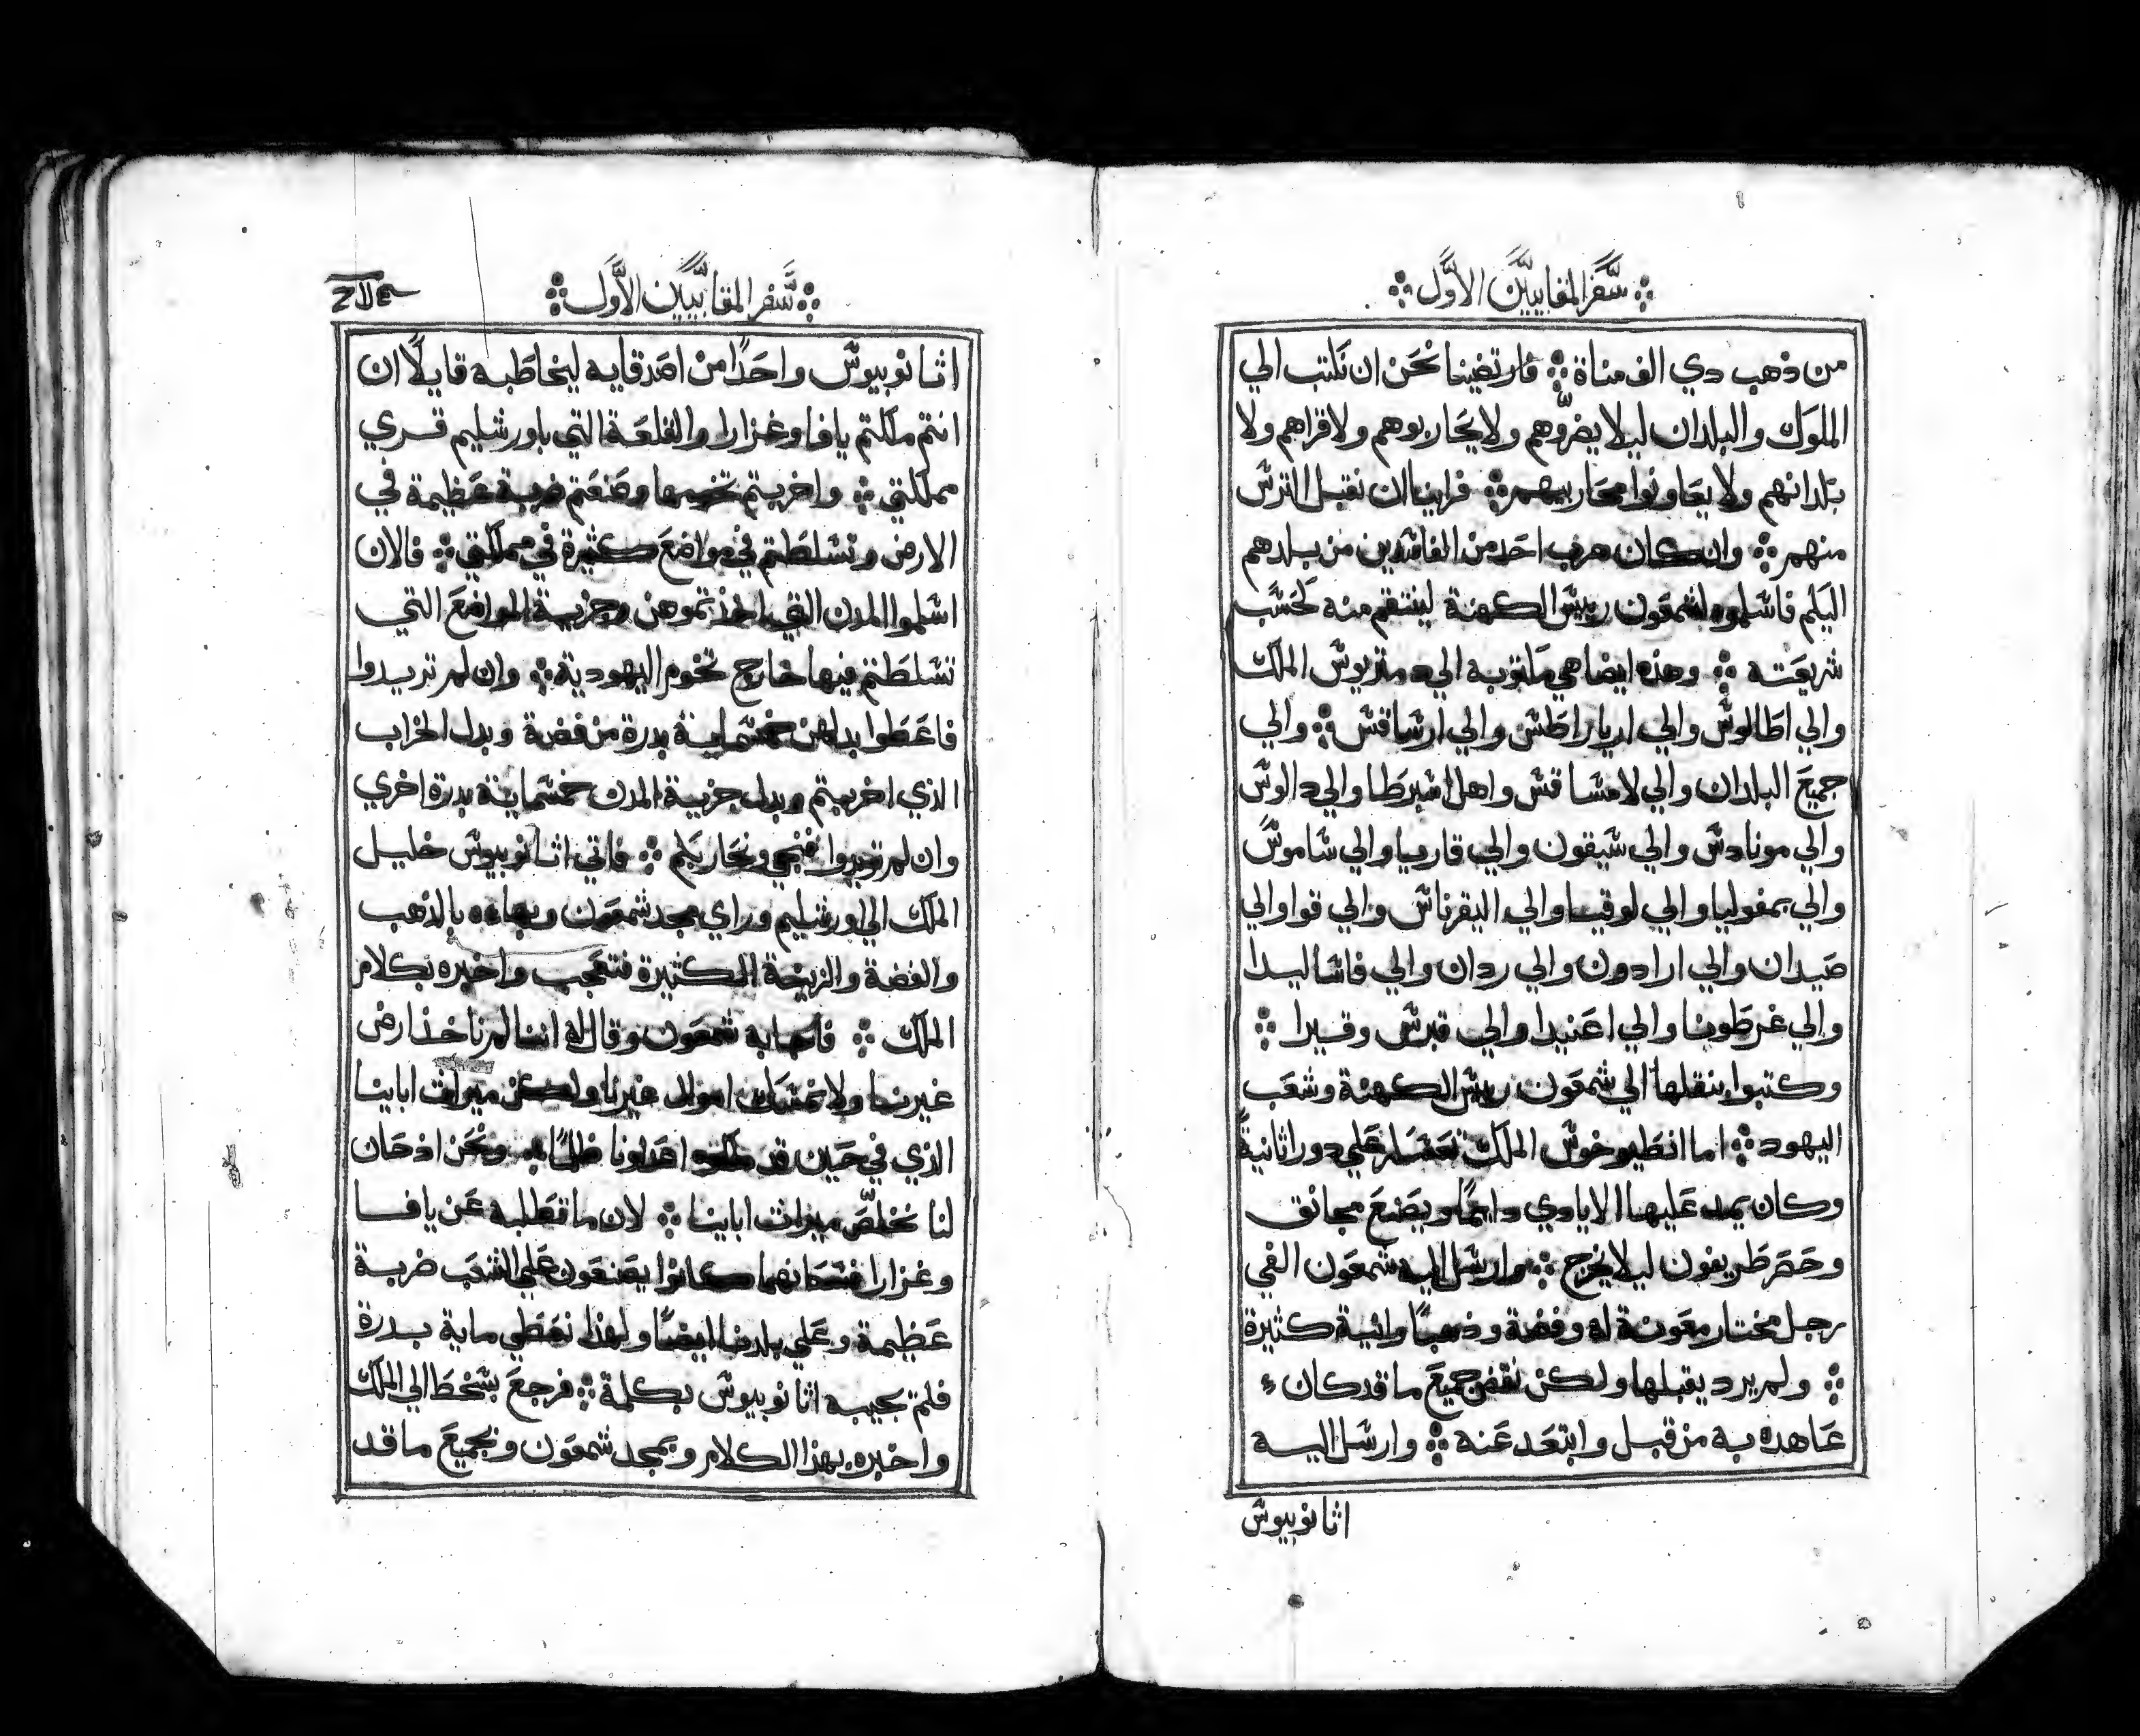 سفر المقابيين الأول
من ذهب دي الف مناة فارتضينا نحن ان نكتب الي
الملوك والبلدان ليلا يضروهم ولا يحاربوهم ولا قراهم ولا
بلدانهم ولا يعاونوا محاربيهم فراينا ان نقبل الترس
منهم وان كان هرب احد من الفاسدين من بلدهم
اليكم فاسلموه لشمعون رييس الكهنة لينتقم منه كحسب
شريعته وهذه ايضا هي ماتوبه الي دمتريوس الملك
والي اطالوس والي ارياراطس والي ارساقس والي
جميع البلدان والي لامساقس واهل اسبرطا والي دالوس
والي مونادس والي سيقون والي قاريا والي ساموس
والي بمفوليا والي لوقيا والي اليقرناس والي قوا والي
صيدان والي ارادون والي ردان والي فاساليدا
والي غرطونا والي اعنيدا والي قبرس وقيرا
وكتبوا بنقلها الي شمعون رييس الكهنة وشعب
اليهود اما انطيوخوس الملك تعسكر علي دورا ثانية
وكان يمد عليها الايادي دايما ويصنع مجانق
وحصر طريفون ليلا يخرج وارسل اليه شمعون الفي
رجل مختار معونة له وفضة وذهبا وانية كثيرة
ولم يرد يقبلها ولكن نقض جميع ما قد كان
عاهده به من قبل وابتعد عنه وارسل اليه
اثانوبيوس
سفر المقابيين الأول
اثانوبيوس واحدا من اصدقايه ليخاطبه قايلا ان
انتم ملكتم يافا وغزارا والقلعة التي باورشليم قري
مملكتي واخربتم تخومها وصنعتم ضربة عظيمة في
الارض وتسلطتم في مواضع كثيرة في مملكتي فالان
اسلموا المدن التي اخذتموهن وجزية المواضع التي
تسلطتم فيها خارج تخوم اليهودية وان لم تريدوا
فاعطوا بدلهن خمسماية بدرة من فضة وبدل الخراب
الذي اخربتم وبدل جزية المدن خمسماية بدرة اخري
وان لم تريدوا فنجي ونحاربكم فاتي اثانوبيوس خليل
الملك الي اورشليم وراي مجد شمعون وبهاه بالذهب
والفضة والزيجة الكثيرة فتعجب واخبره بكلام
الملك فاجابه شمعون وقال له اننا لم ناخذ ارض
غيرنا ولا نمسك اموال غيرنا ولكن ميراث اباينا
الذي في حين قد ملكه اعداونا ظلما ونحن اذ حان
لنا نخلص ميراث اباينا لان ما تطلبه عن يافا
وغزارا فسكانهما كانوا يصنعون علي الشعب ضربة
عظيمة وعلي بلدنا ايضا ولهذا نعطي ماية بدرة
فلم يجيبه اثانوبيوس بكلمة فرجع بسخط الي الملك
واخبره بهذا الكلام وبمجد شمعون وبجميع ما قد